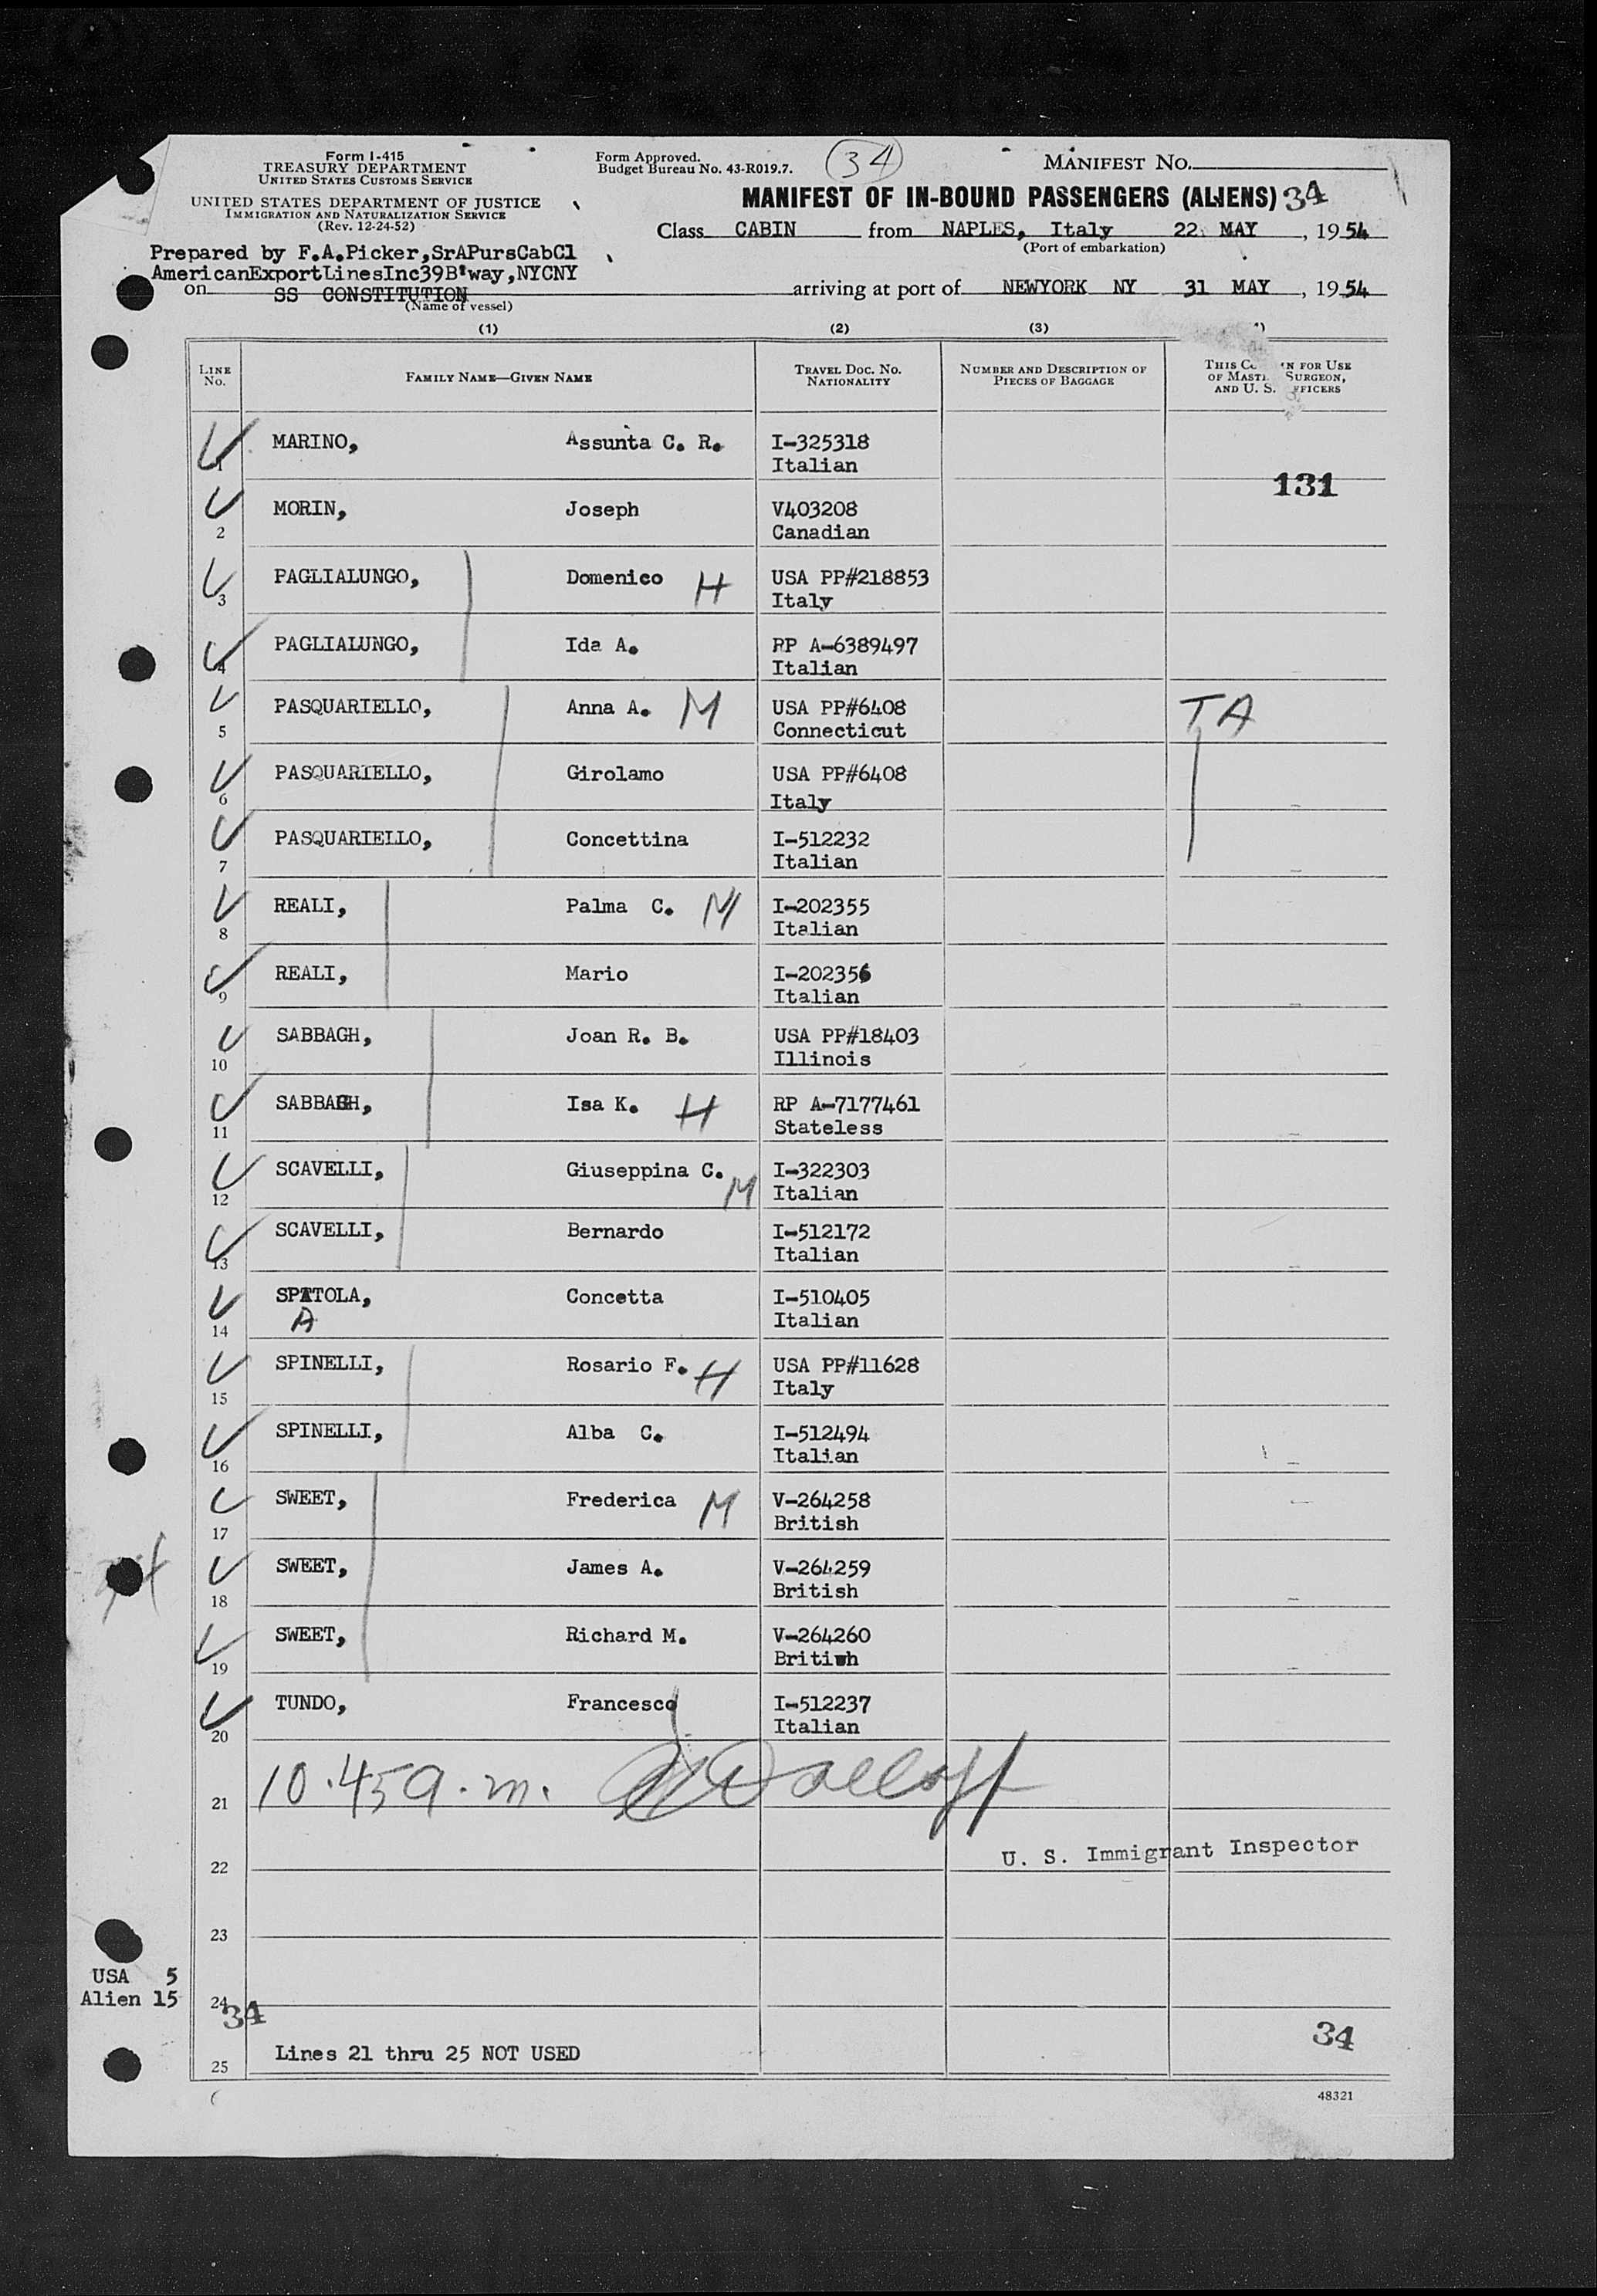 Form I-415
TREASURY DEPARTMENT
UNITED STATES CUSTOMS SERVICE
UNITED STATES DEPARTMENT OF JUSTICE
IMMIGRATION AND NATURALIZATION SERVICE
(Rev. 12-24-52)
Form Approved.
Budget Bureau No. 43-R019.7.
34
MANIFEST NO.
MANIFEST OF IN-BOUND PASSENGERS (ALIENS) 34
Class CABIN from NAPLES, Italy 22 MAY, 1954
(Port of embarkation)
Prepared by F.A.Picker,SrAPursCabCl
AmericanExportLinesInc39B'way,NYCNY
on SS CONSTITUTION arriving at port of NEWYORK NY 31 MAY, 1954
(Name of vessel)
(1) (2) (3)
LINE NO. FAMILY NAME—GIVEN NAME TRAVEL DOC. NO. NATIONALITY NUMBER AND DESCRIPTION OF PIECES OF BAGGAGE THIS FOR USE OF SURGEON, AND U. S.
1 MARINO, Assunta C. R. I-325318
Italian
131
2 MORIN, Joseph V403208
Canadian
3 PAGLIALUNGO, Domenico H USA PP#218853
Italy
4 PAGLIALUNGO, Ida A. RP A-6389497
Italian
5 PASQUARIELLO, Anna A. M USA PP#6408 TA
Connecticut
6 PASQUARIELLO, Girolamo USA PP#6408
Italy
7 PASQUARIELLO, Concettina I-512232
Italian
8 REALI, Palma C. M I-202355
Italian
9 REALI, Mario I-202356
Italian
10 SABBAGH, Joan R. B. USA PP#18403
Illinois
11 SABBAGH, Isa K. H RP A-7177461
Stateless
12 SCAVELLI, Giuseppina C. M I-322303
Italian
13 SCAVELLI, Bernardo I-512172
Italian
14 SPATOLA, Concetta I-510405
A Italian
15 SPINELLI, Rosario F. H USA PP#11628
Italy
16 SPINELLI, Alba C. I-512494
Italian
17 SWEET, Frederica M V-264258
British
18 SWEET, James A. V-264259
British
19 SWEET, Richard M. V-264260
Britiwh
20 TUNDO, Francesco I-512237
Italian
21 10.45 a.m.
U. S. Immigrant Inspector
22
23
USA 5
Alien 15
24
34
34
25 Lines 21 thru 25 NOT USED
48321